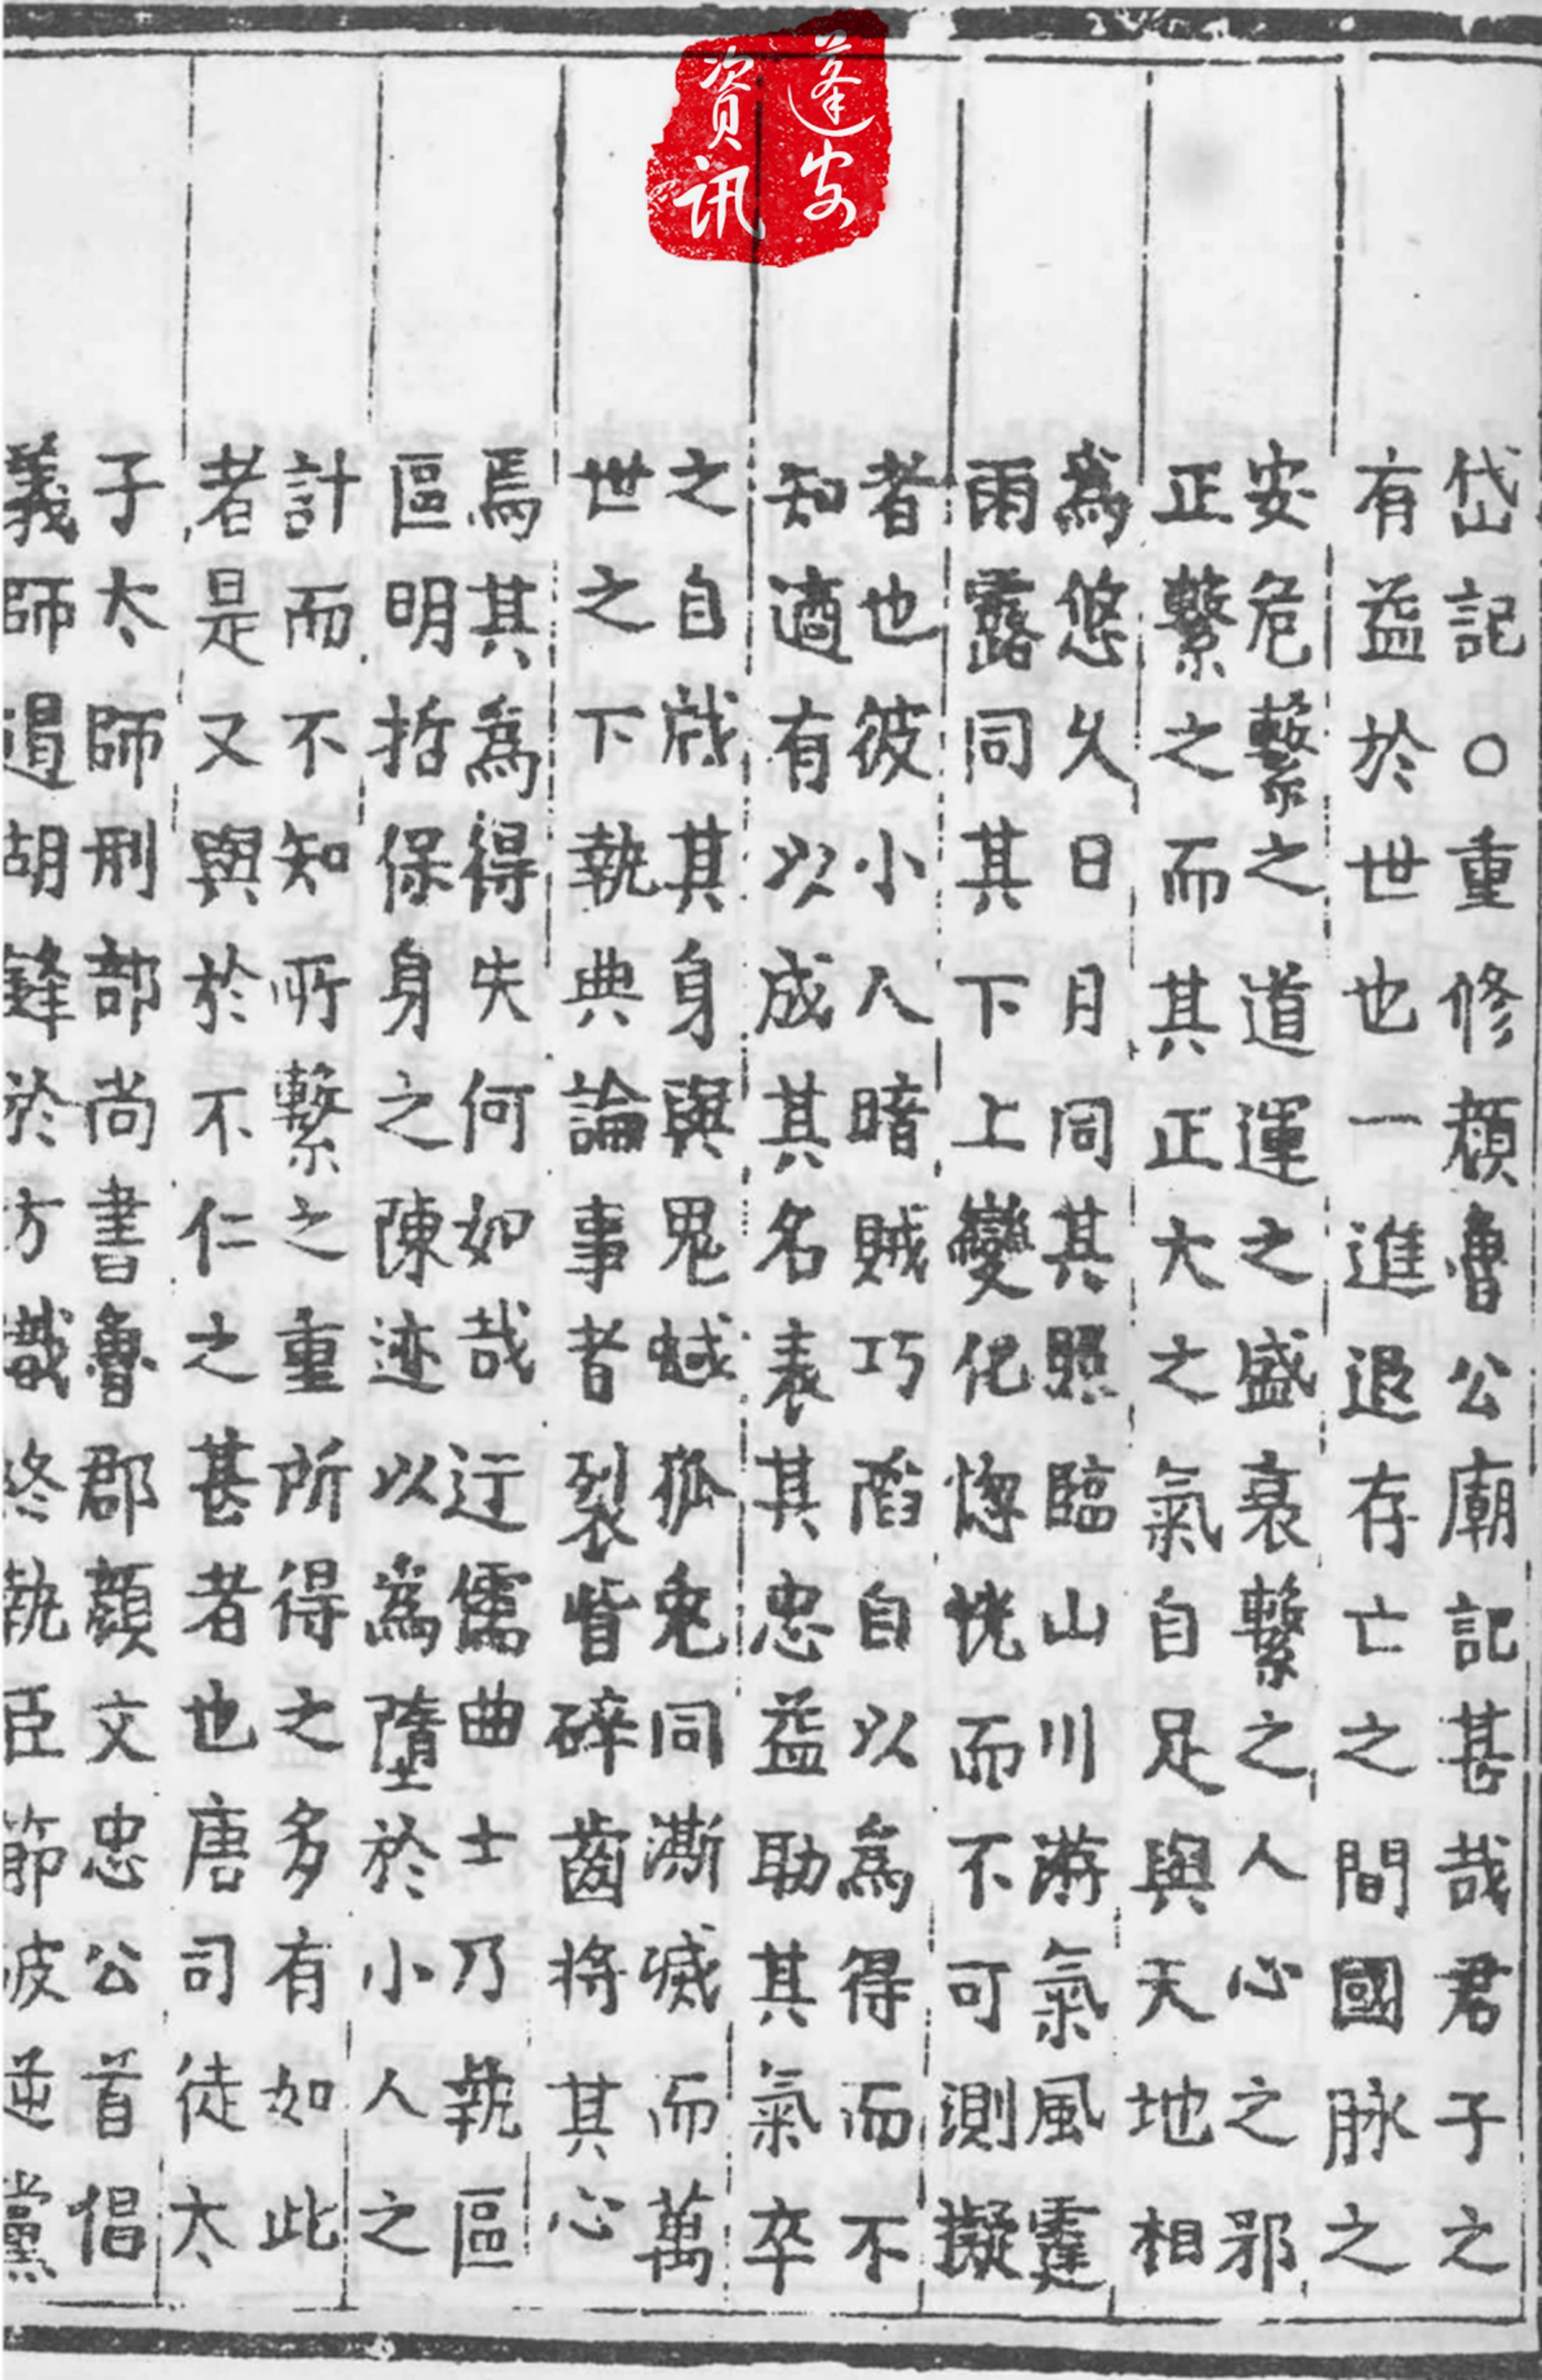 蓬安
资讯
岱記○重修顔魯公廟記甚哉君子之
有益於世也一進退存亡之間國脉之
安危繫之道運之盛衰繫之人心之邪
正繫之而其正大之氣自足與天地相
爲悠久日月同其照臨山川游氣風霆
雨露同其下上變化惚恍而不可測擬
者也彼小人暗賊巧䧟自以爲得而不
知適有以成其名表其忠益助其氣卒
之自戕其身與鬼蜮狐兔同澌滅而萬
世之下執典論事者裂眥碎齒將其心
焉其爲得失何如哉迂儒曲士乃執區
區明哲保身之陳迹以爲墮於小人之
計而不知所繫之重所得之多有如此
者是又與於不仁之甚者也唐司徒太
子太師刑部尚書魯郡顔文忠公首倡
義師遏胡鋒於方熾終執臣節彼逆黨